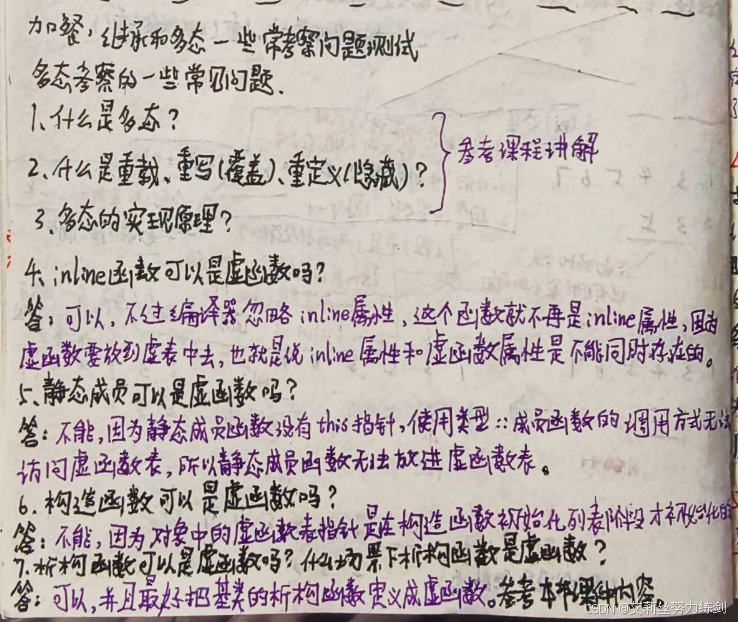 加餐,继承和多态一些常考察问题测试
多态考察的一些常见问题.
1、什么是多态?
2、什么是重载、重写(覆盖)、重定义(隐藏)?
参考课程讲解
3、多态的实现原理?
4、inline函数可以是虚函数吗?
答:可以,不过编译器忽略inline属性,这个函数就不再是inline属性,因为
虚函数要放到虚表中去,也就是说inline属性和虚函数属性是不能同时存在的。
5、静态成员可以是虚函数吗?
答:不能,因为静态成员函数没有this指针,使用类型::成员函数的调用方式无法
访问虚函数表,所以静态成员函数无法放进虚函数表。
6.构造函数可以是虚函数吗?
答:不能,因为对象中的虚函数表指针是在构造函数初始化列表阶段才初始化的
7.析构函数可以是虚函数吗?什么场景下析构函数是虚函数?
答:可以,并且最好把基类的析构函数定义成虚函数。参考本节课件内容。
CSDN @艾莉丝努力练剑